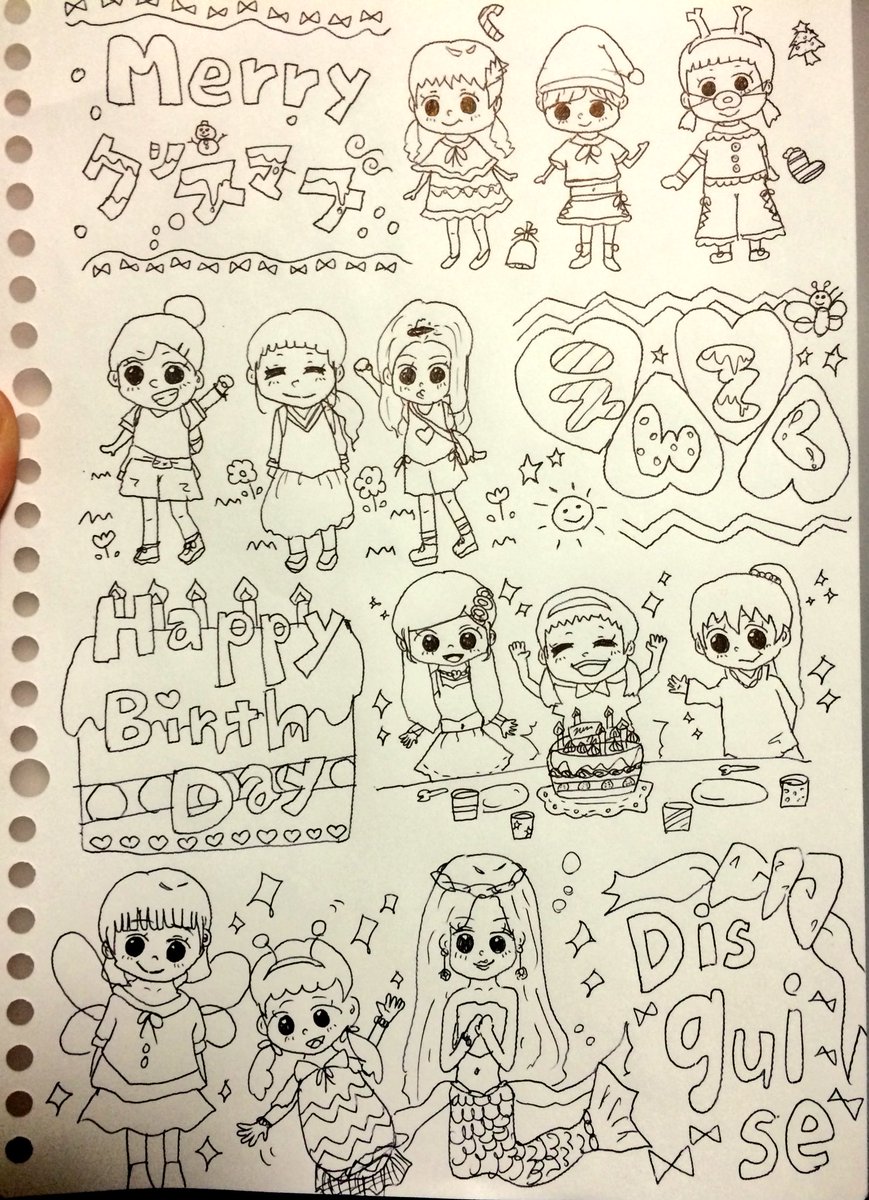 Merry
クリスマス
えんそく
Happy
Birth
Day
Dis
gui
se